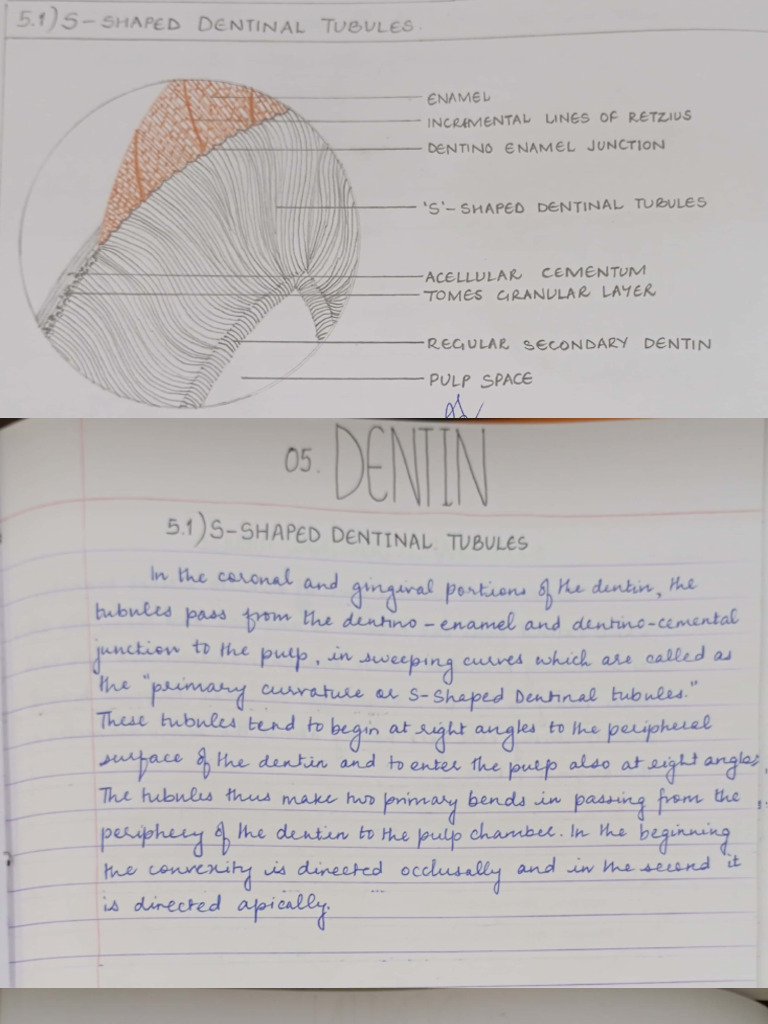 5.1) S-SHAPED DENTINAL TUBULES.
ENAMEL
INCRAMENTAL LINES OF RETZIUS
DENTINO ENAMEL JUNCTION
'S'-SHAPED DENTINAL TUBULES
ACELLULAR CEMENTUM
TOMES GRANULAR LAYER
REGULAR SECONDARY DENTIN
PULP SPACE
05. DENTIN
5.1) S-SHAPED DENTINAL TUBULES
In the coronal and gingival portions of the dentin, the
tubules pass from the dentino-enamel and dentino-cemental
junction to the pulp, in sweeping curves which are called as
the "primary curvature or S-Shaped Dentinal tubules."
These tubules tend to begin at right angles to the peripheral
surface of the dentin and to enter the pulp also at right angles.
The tubules thus make two primary bends in passing from the
periphery of the dentin to the pulp chamber. In the beginning
the convexity is directed occlusally and in the second it
is directed apically.